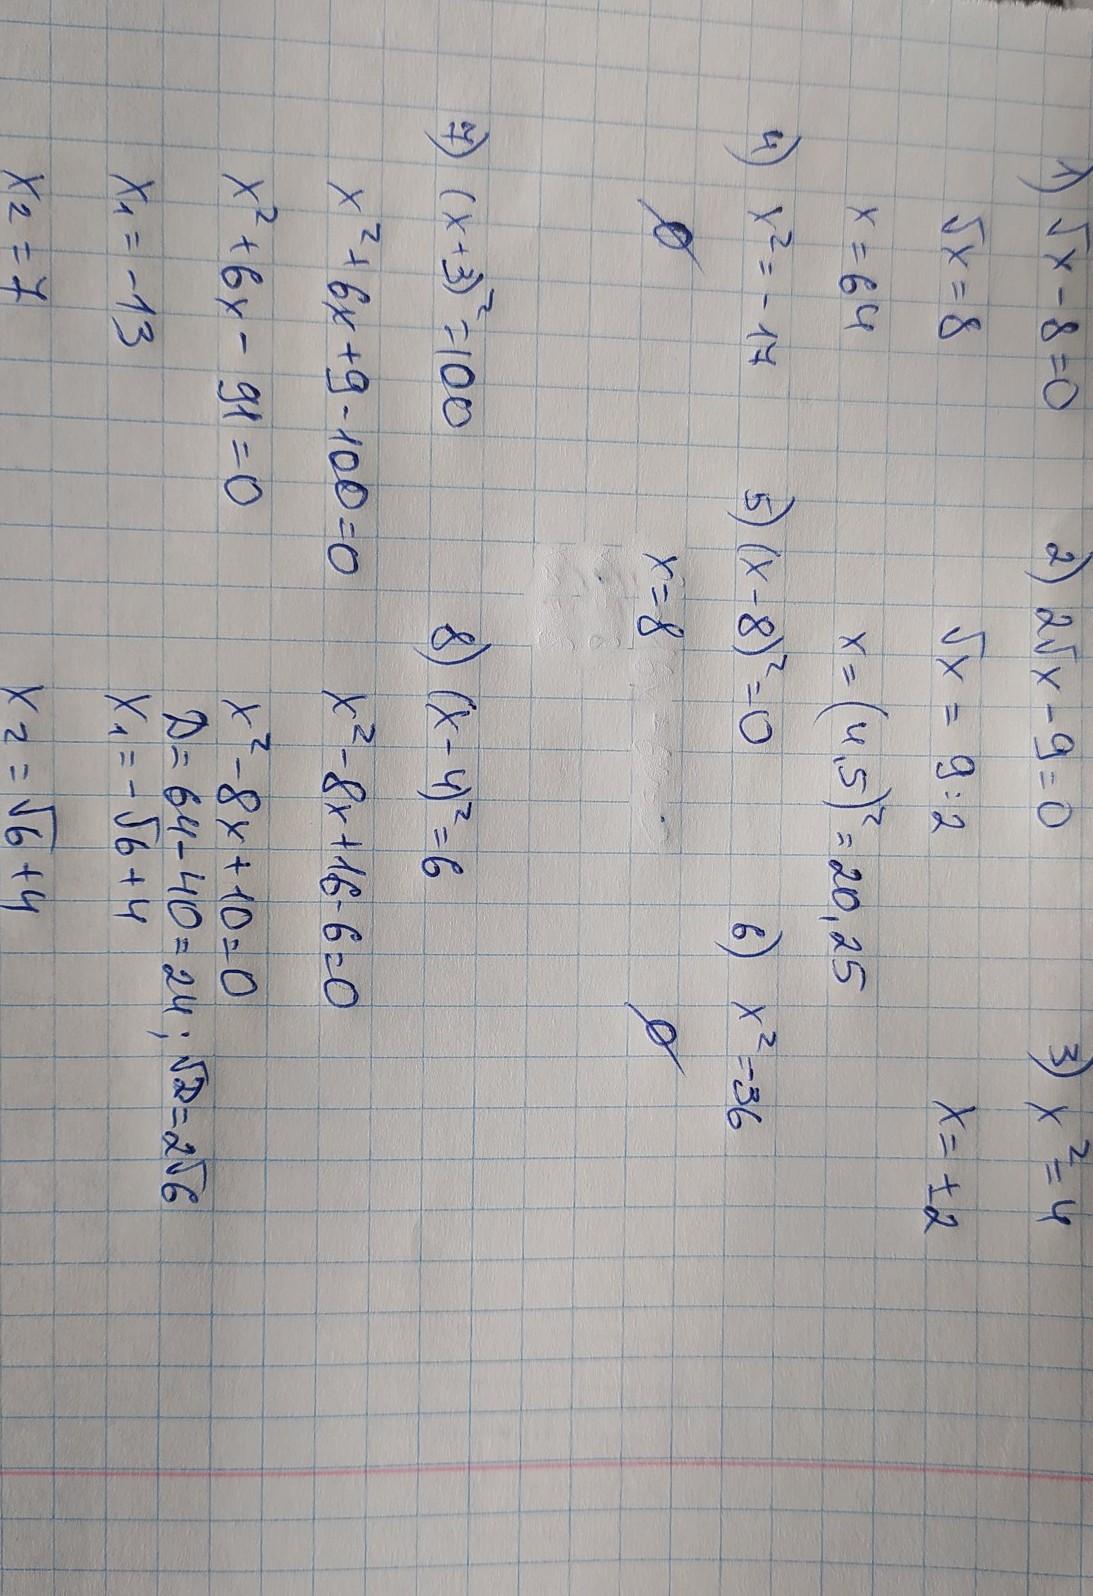 1) √x - 8 = 0
√x = 8
x = 64
2) 2√x - 9 = 0
√x = 9:2
x = (4,5)² = 20,25
3) x² = 4
x = ±2
4) x² = - 17
∅
5) (x - 8)² = 0
x = 8
6) x² = -36
∅
7) (x + 3)² = 100
x² + 6x + 9 - 100 = 0
x² + 6x - 91 = 0
x₁ = -13
x₂ = 7
8) (x - 4)² = 6
x² - 8x + 16 - 6 = 0
x² - 8x + 10 = 0
D = 64 - 40 = 24; √D = 2√6
x₁ = - √6 + 4
x₂ = √6 + 4